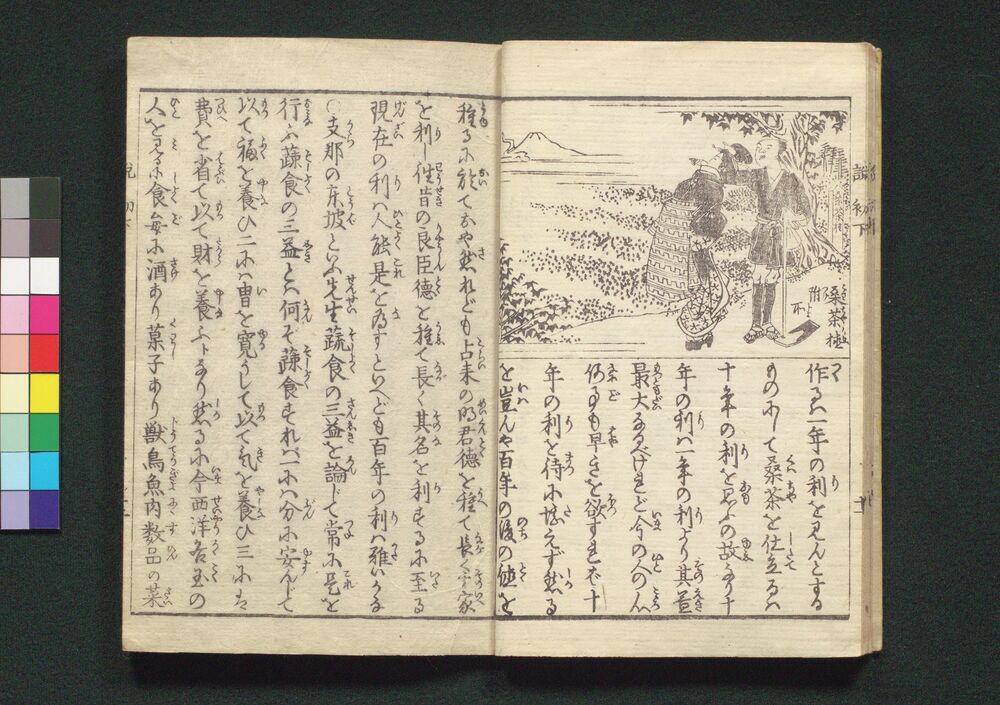 作るハ一年の利を見んとする
ものにして桑茶を仕立るハ
十年の利を見るの故なり十
年の利ハ一年の利より其益
最大なるべけれど今の人の心
何事も早きを欲すれバ十
年の利を待に堪えず然る
を豈んや百年の後の徳を
種るに於ておや然れども古来の明君徳を種て長く家
を利し往昔の良臣徳を種て長く其名を利するに至る
現在の利ハ人能是を為すといへども百年の利ハ雖いかな
○支那の東坡といふ先生蔬食の三益を論じて常に是を
行ふ蔬食の三益とハ何ぞ蔬食すれハ一にハ分に安んじて
以て福を養ひ二にハ胃を寛うして以て気を養ひ三にハ
費を省て以て財を養ふトなり然るに今西洋各国の
人を見るに食毎に酒あり菓子あり獣鳥魚肉数品の菜
桑茶植